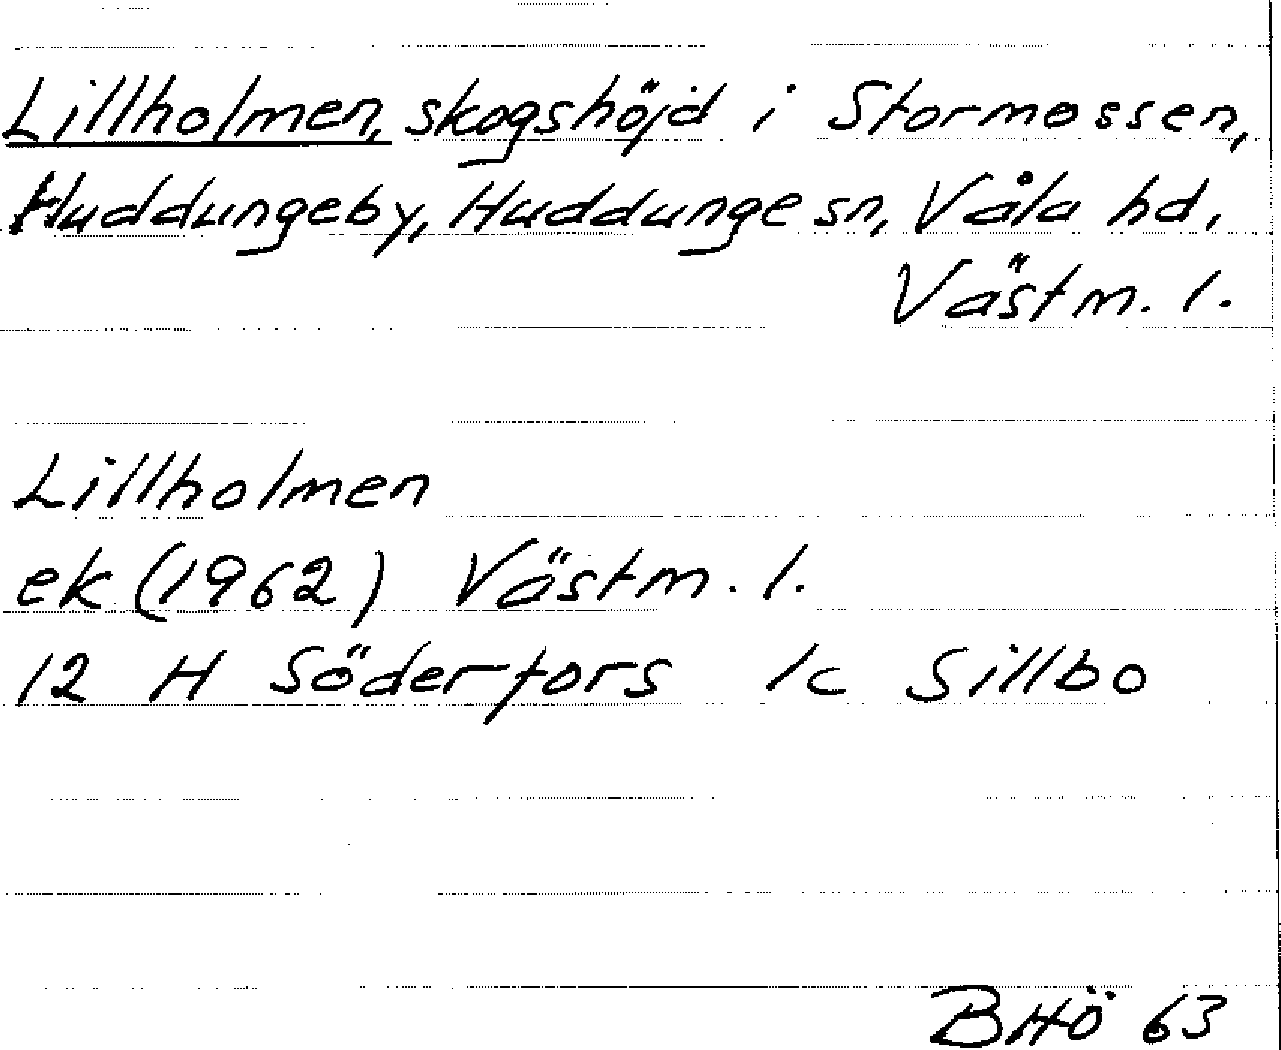 Lillholmen, skogshöjd i Stormossen,
Huddungeby, Huddunge sn, Våla hd,
Västm. l.
Lillholmen
ek (1962) Västm. l.
12 H Söderfors 1c Sillbo
BHÖ 63